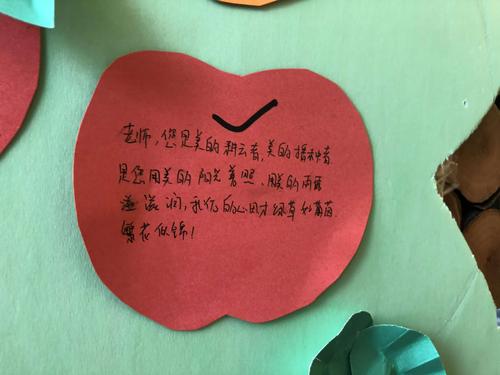 老师，您是美的耕云者，美的播种者
是您用美的阳光普照、用美的雨露
滋润，我们的心田才绿草如茵
繁花似锦！